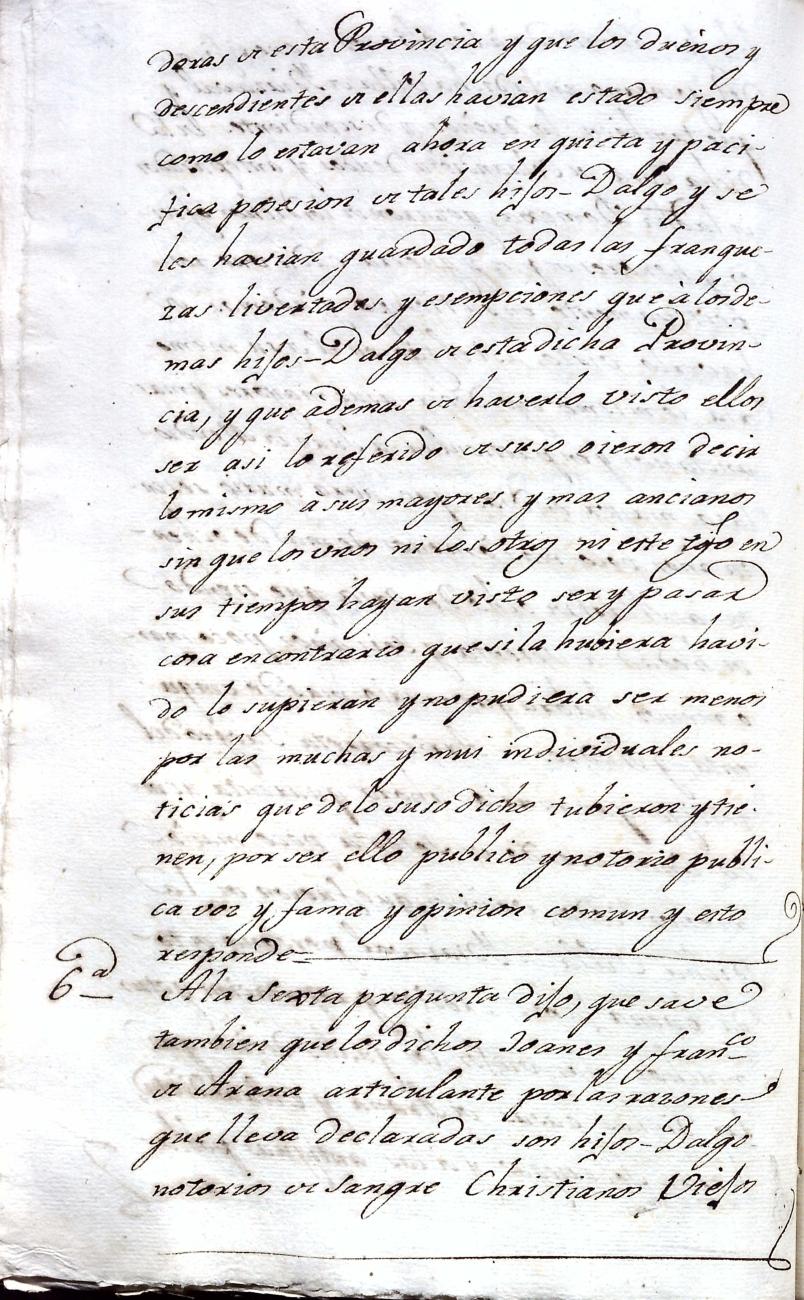 doras de esta Provincia y que los dueños y
descendientes de ellas havian estado siempre
como lo estavan ahora en quieta y paci-
fica posesion de tales hijos-Dalgo y se
les havian guardado todas las franque-
zas livertades y esempciones que à los de-
mas hijos-Dalgo de esta dicha Provin-
cia, y que àdemas de haverlo visto ellos
ser asi lo referido de suso oieron decir
lo mismo à sus mayores y mas ancianos
sin que los unos ni los otros ni este tgo en
sus tiempos hayan visto ser y pasar
cosa en contrario que si la hubiera havi-
do lo supieran y no pudiera ser menos
por las muchas y mui individuales no-
ticias que de lo suso dicho tubieron y tie-
nen, por ser ello publico y notorio publi-
ca voz y fama y opinion comun y esto
responde
6ª A la sexta pregunta dijo, que save
tambien que los dichos Joanes y Franco
de Arana articulante por las razones
que lleva declaradas son hijos-Dalgo
notorios de sangre Christianos Viejos